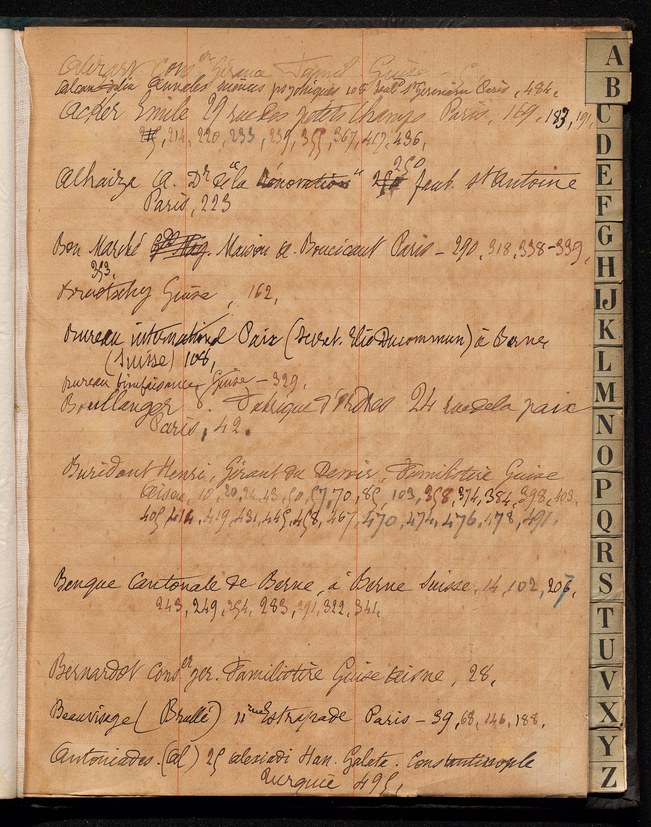 Alizart Cons er Gérance Famil Guise
Alcan Félix Annales sciences psychiques 108 boul d St Germain Paris, 484.
Acker Emile 29 rue des petits Champs Paris, 169, 183, 191,
214, 220, 233, 239, 355, 367, 417, 436,
Alhaiza A. D r de "la Rénovation" 250 faub. St Antoine
Paris, 223
Bon Marché Maison A. Boucicaut Paris – 290, 318, 338-339,
353,
Guise, 162,
Bureau international Paix (Secret. Elie Ducommun) à Berne
(Suisse) 108,
Bureau bienfaisance Guise – 329.
Boullanger 24 rue de la paix
Paris, 42.
Buridant Henri, Gérant du Devoir, Familistère Guise
Aisne, 10, 20, 24, 43, 50, 57, 70, 85, 103, 358, 374, 384, 398, 403,
405, 414, 419, 431, 445, 458, 467, 470, 474, 476, 478, 491,
Banque Cantonale de Berne, à Berne Suisse, 14, 102, 207,
243, 249, 254, 283, 291, 322, 341,
Bernardot Cons er ger. Familistère Guise Aisne, 28,
Beauvisage (Brallé) 11 rue Estrapade Paris – 39, 68, 146, 188,
Antoniades. (Al) 25 Alexiadi Han. Galata. Constantinople
Turquie 495,
A
B
C
D
E
F
G
H
IJ
K
L
M
N
O
P
Q
R
S
T
U
V
X
Y
Z